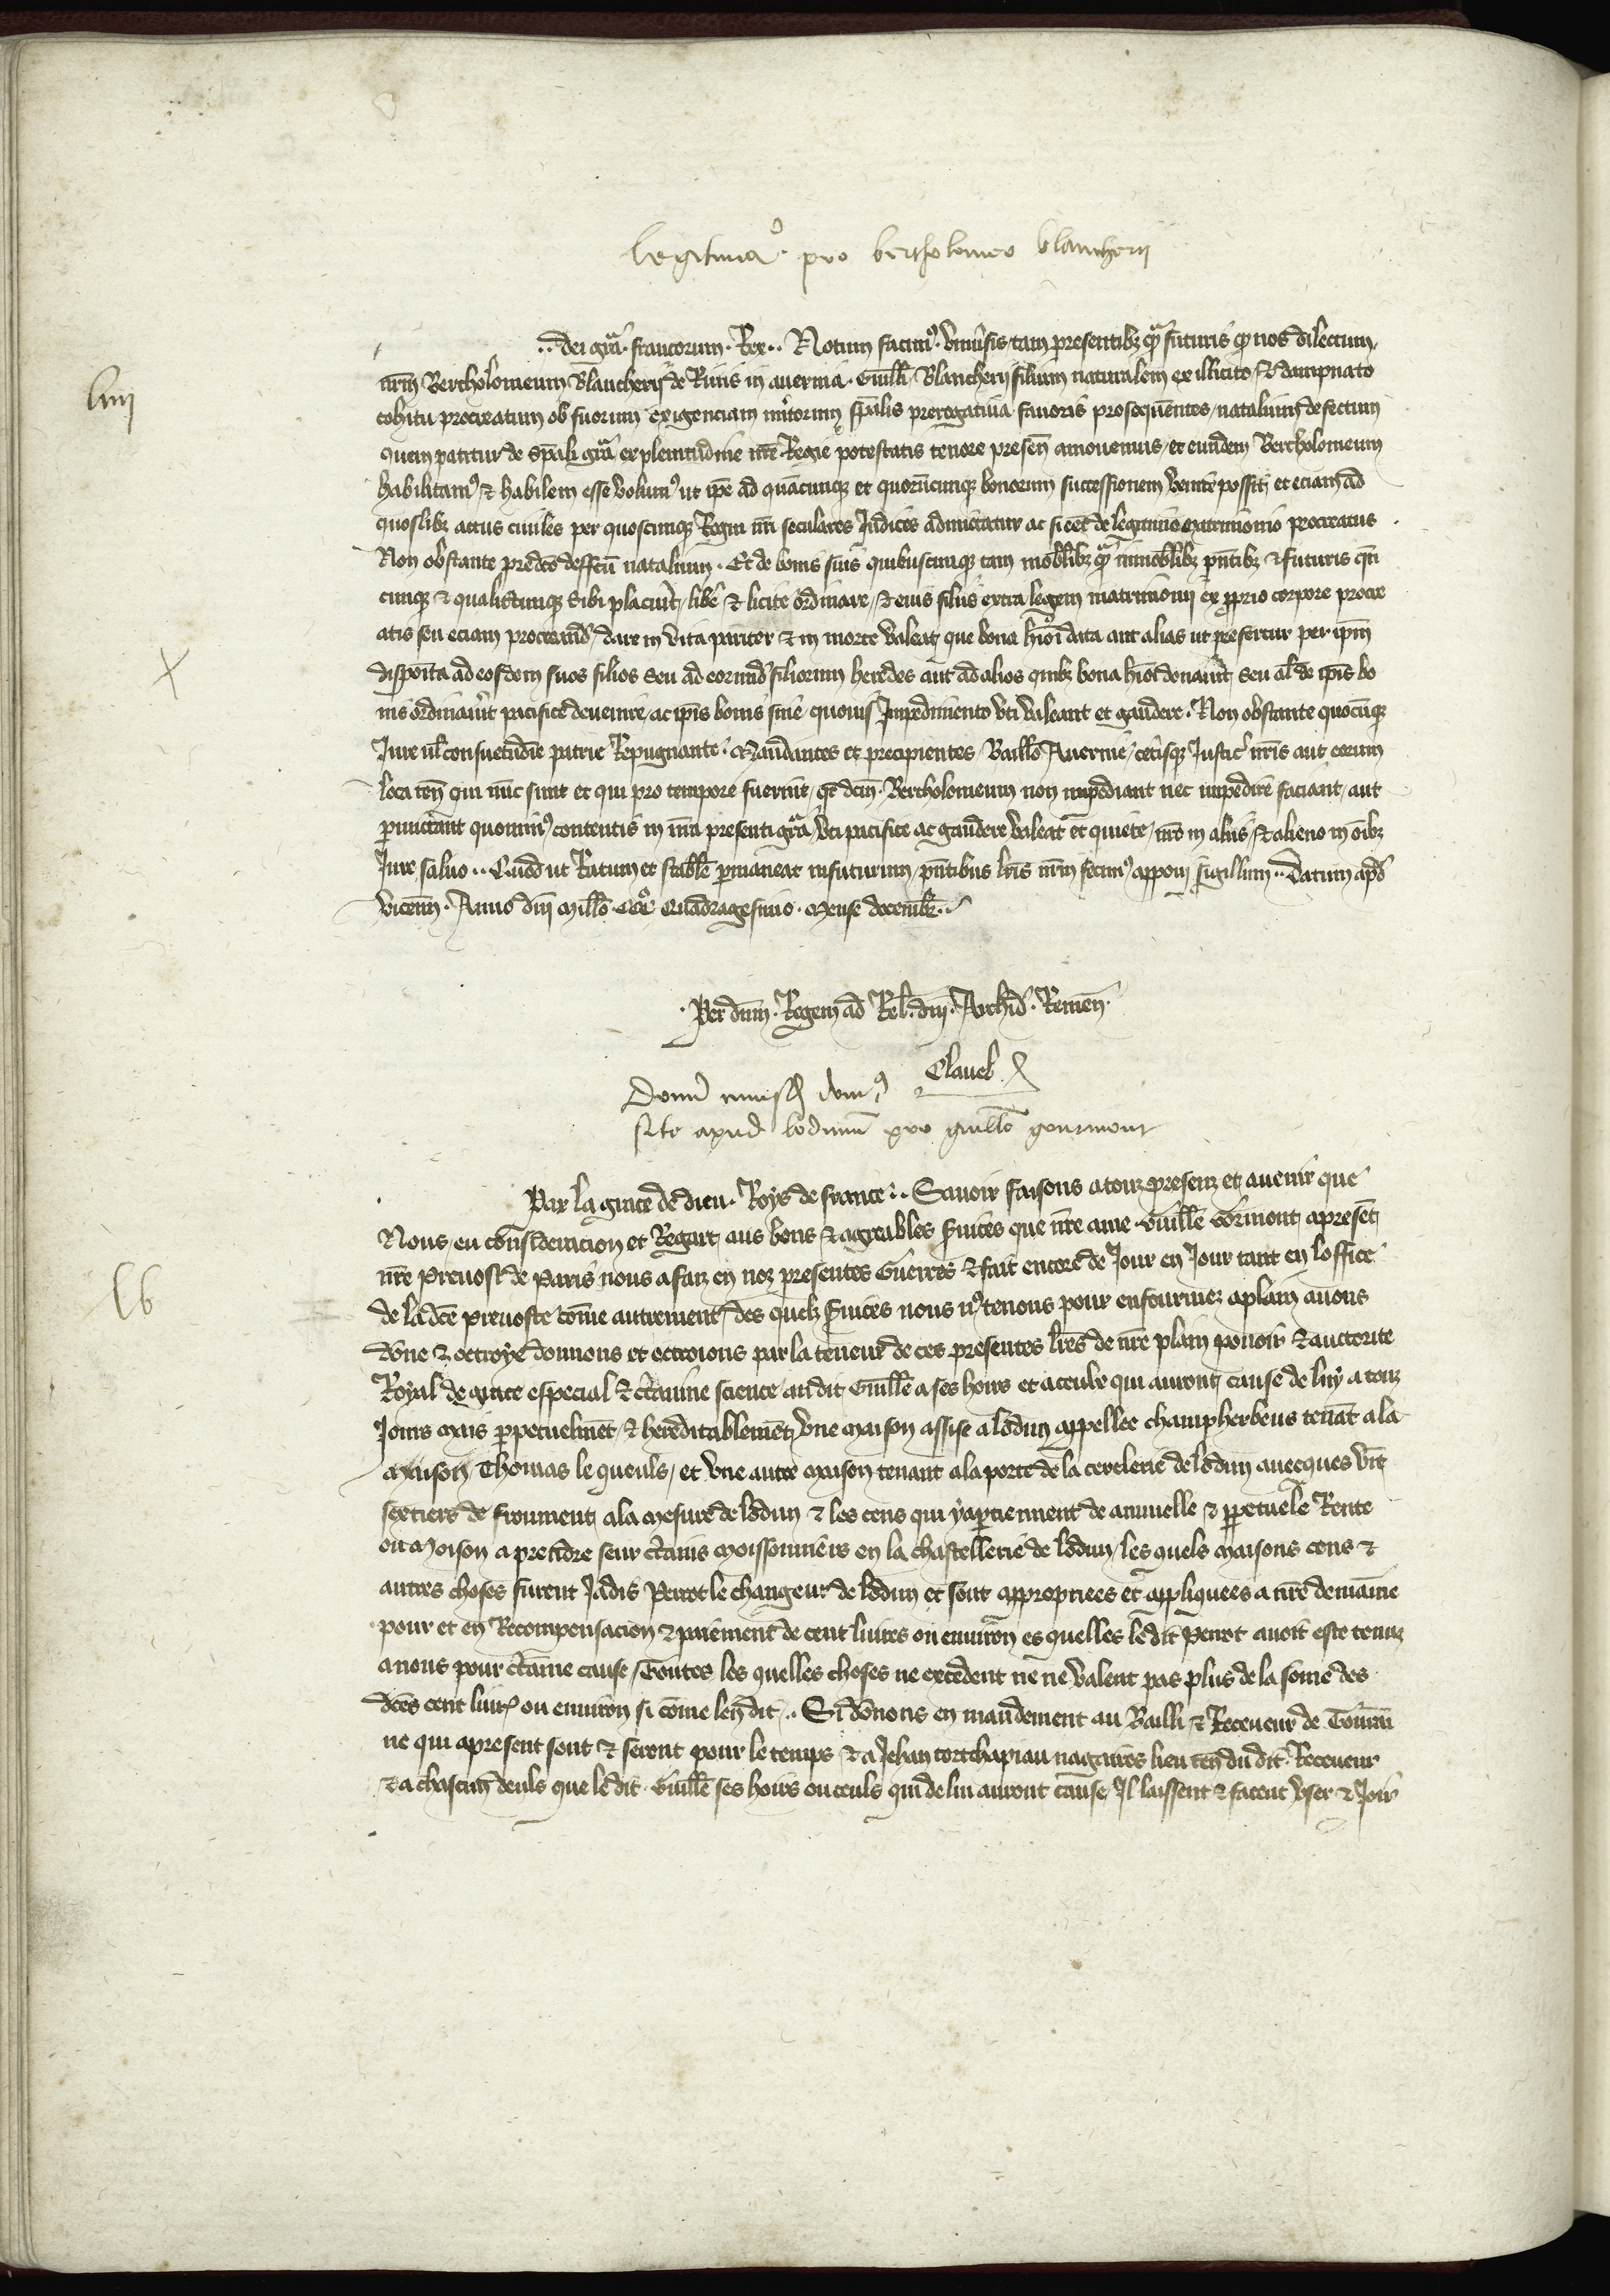 legitimaᵒ. pro bertholomeo blancherii
liiij
.. dei grā. francorum. Rex.. Notum facimꝰ. vniūsis tam presentibꝫ qᵃ futuris qꝫ nos dilectum
nrm̄ Bertholomeum Blancherii de Rivis in auernia. Guill̄i Blancherij filium naturalem ex illicito / & dampnato
cohitu procreatum ob suorum exigenciam mītorum spālis prerogatiua fauoris prosequentes / natalium defectum
quem patitur de spāli grā ex plenitudine nr̄e Regie potestatis tenore presen̄ amouemus / et eundem Bertholomeum
habilitamꝰ & habilem esse volumꝰ ut ip̄e ad quācunqꝫ et quorūcunqꝫ bonorum successionem venire possit et eciam ad
quoslibꝫ actus ciuiles per quoscunqꝫ Regni nr̄i seculares Judices admictatur ac si eēt de legitimo matrimonio procreatus
Non obstante predc̄o deffc̄u natalium. Et de bonis suis quibuscunqꝫ tam mobil̄ibꝫ qᵃ immobil̄ibꝫ pn̄tibꝫ & futuris qn̄
cunqꝫ & qualitcunqꝫ sibi placuit / lib̄e & licite ordinare / & eius filiis extra legem matrimonij ex p̄prio corpore procre
atis seu eciam procreand̄ / dare in vita pariter & in morte valeat que bona hm̄oi data aut alias ut prefertur per ip̄m
disposita ad eosdem suos filios seu ad eorumd̄ filiorum heredes aut ad alios quibꝫ bona hm̄oi donauit seu al̄ de ip̄is bo
nis ordinauit pacifice deuenire / ac ip̄is bonis sine quouis Impedimento vti valeant et gaudere. Non obstante quocūqꝫ
Jure ul̄ consuetudīe patrie Repugnante. Mandantes et precipientes Baill̄o Auernie / cet̄isqꝫ Justic̄ nr̄is aut eorum
loca ten̄ qui nūc sunt et qui pro tempore fuerint / qt̄ dcm̄. Bertholomeum non impediant nec impedire faciant / aut
p̄mictant quominꝰ contentis in nr̄a presenti grā vti pacifice ac gaudere valeat et quiete / nr̄o in aliis / & alieno in oībꝫ
Jure saluo.. Quod ut Ratum et stabile p̄maneat in futurum pn̄tibus lr̄is nrm̄ fecimꝰ apponi sigillum.. Datum apd̄
vicenn̄. Anno dnī mill̄o. CCCᵒ Quadragesimo. mense decembr̄..
Per dnm̄. Regem ad Rel̄. dnī. Archid̄. Remen̄.
Clauel
Donū domꝰ
site apud lodunū pro guill̄o gourmont
lv
Par la grace de dieu. Roys de france.. Sauoir faisons a touz presenz et auenir que
Nous / en consideracion et Regart / aus bons & aggreables suices que nr̄e ame Guill̄e Gormont a present
nr̄e Preuost de Paris nous a faiz en noz presentes Guerres & fait encore de Jour en Jour tant en loffice
de la dc̄e preuoste cōme autrement / des quelx suices nous nꝰ tenons pour enfourmez a plain auons
dōne & octroye donnons et octroions par la teneur de ces presentes lr̄es de nr̄e plain pouoir & auctorite
Royal de grace especial & c̄taine science / au dit Guill̄e a ses hoirs et a ceulx qui auront cause de luy a touz
Jours mais perpetuelmēt / & hereditablemēt vne maison assise a lodun appellee champherbeus tenāt a la
maison Thomas le queuls / et vne autre maison tenant a la porte de la cerclerie de lodun auecques vīt
sextiers de froument / a la mesure de lodun & les cens qui y ap̄tiennent de annuelle & p̄petuele Rente
ou Moison a prendre seur c̄tains moissonniers en la chastellerie de lodun / les quels maisons cens &
autres choses furent Jadis Perrot le changeur de lodun et sont appropriees et appliquees a nr̄e demaine
pour et en Recompensacion & paiement de cent liures ou enuiron es quelles le dit Perrot auoit este tenuz
a nous pour c̄taine cause / Toutes les quelles choses ne excedent ne ne valent pas plus de la sōme des
dc̄es cent liur̄ ou enuiron si cōme len dit.. Si dōnons en mandement au Bailli & Receueur de Tourai
ne qui a present sont & seront pour le temps & a Jehan tortchapiau nagaires lieu ten̄ du dit Receueur
& a chascun deuls que le dit Guill̄e ses hoirs ou ceuls qui de lui auront cause / Il laissent & facent vser & Joir